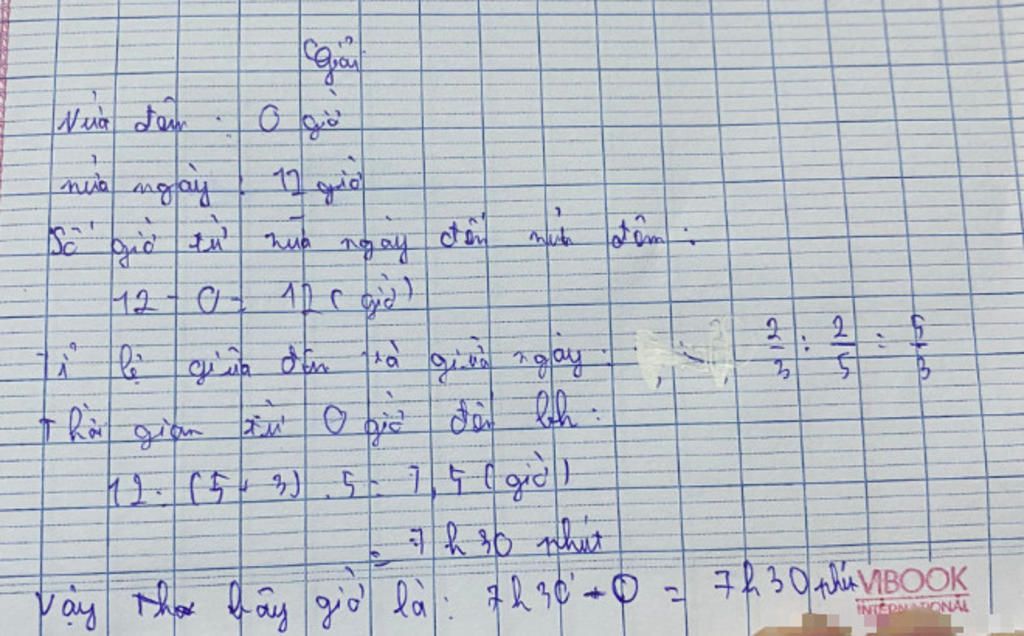 Giải
Nửa đêm : 0 giờ
nửa ngày : 12 giờ
Số giờ từ nửa ngày đến nửa đêm :
12 - 0 = 12 ( giờ )
Tỉ lệ giữa đêm và giữa ngày : 2/3 : 2/5 = 5/3
Thời gian từ 0 giờ đến bh :
12 : (5 + 3) . 5 = 7,5 ( giờ )
= 7h30 phút
Vậy bây giờ là : 7h30 + 0 = 7h30 phút
VIBOOK
INTERNATIONAL